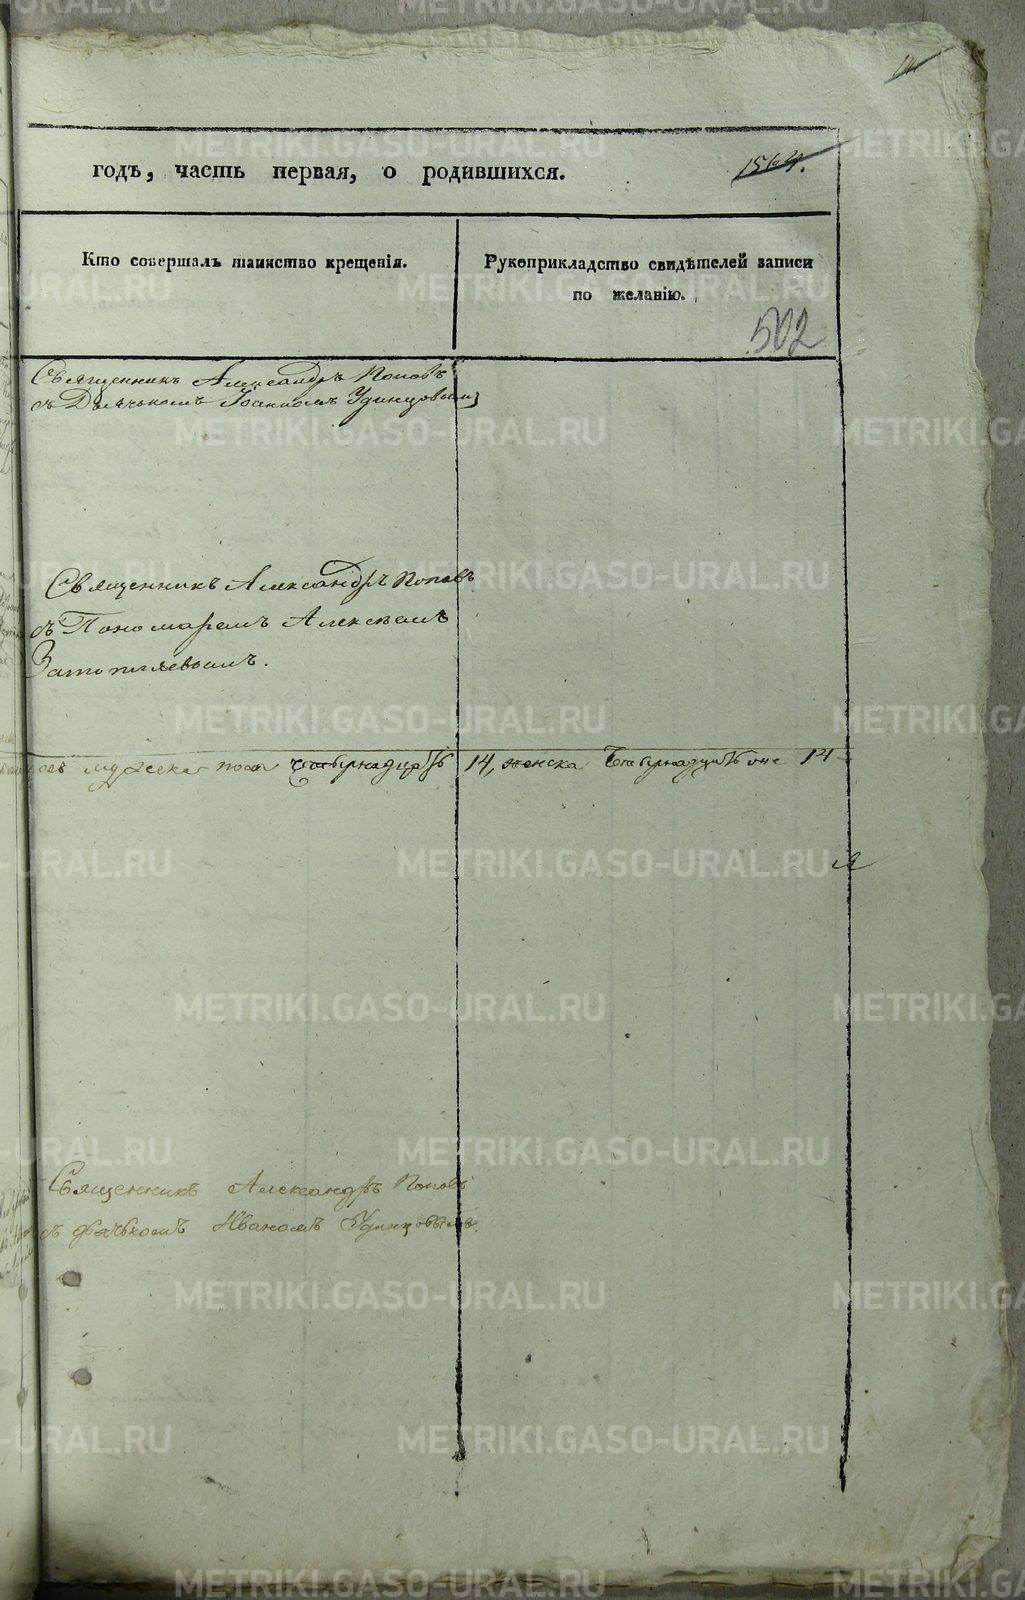 годъ, часть первая, о родившихся.
1564.
Кто совершалъ таинство крещенія.
Рукоприкладство свидѣтелей записи
по желанію.
502
Священникъ Александръ Поповъ
съ Дьячькомъ Іоанномъ Удинцовымъ
Священникъ Александръ Поповъ
съ Пономаремъ Алексѣемъ
Затопляевымъ.
мужеска пола четырнадцать 14, женска четырнадцать 14
Священникъ Александръ Поповъ
съ дьячькомъ Иваномъ Удинцовымъ
METRIKI.GASO-URAL.RU